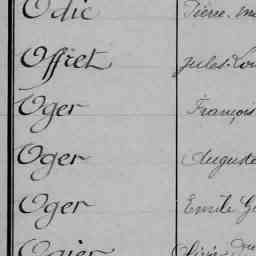 Odic Pierre
Offret Jules
Oger François
Oger Auguste
Oger Emile
Ogier